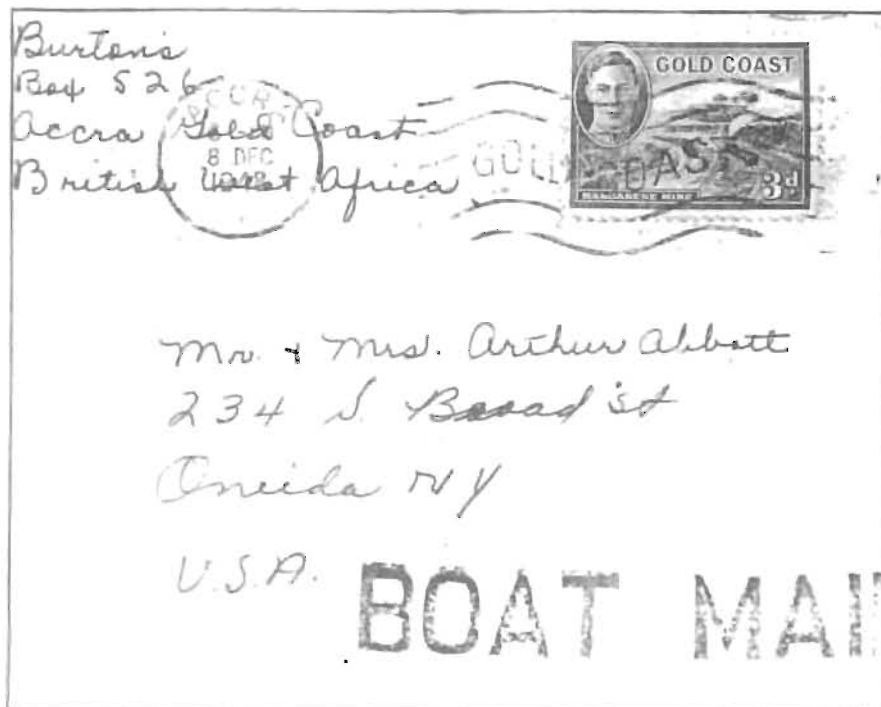 Burtons
Box 526
Accra Gold Coast
British West Africa
8 DEC
GOLD COAST
GOLD COAST
3d
MANGANESE MINE
Mr. + Mrs. Arthur Abbott
234 S. Broad St
Oneida NY
U.S.A.
BOAT MAI